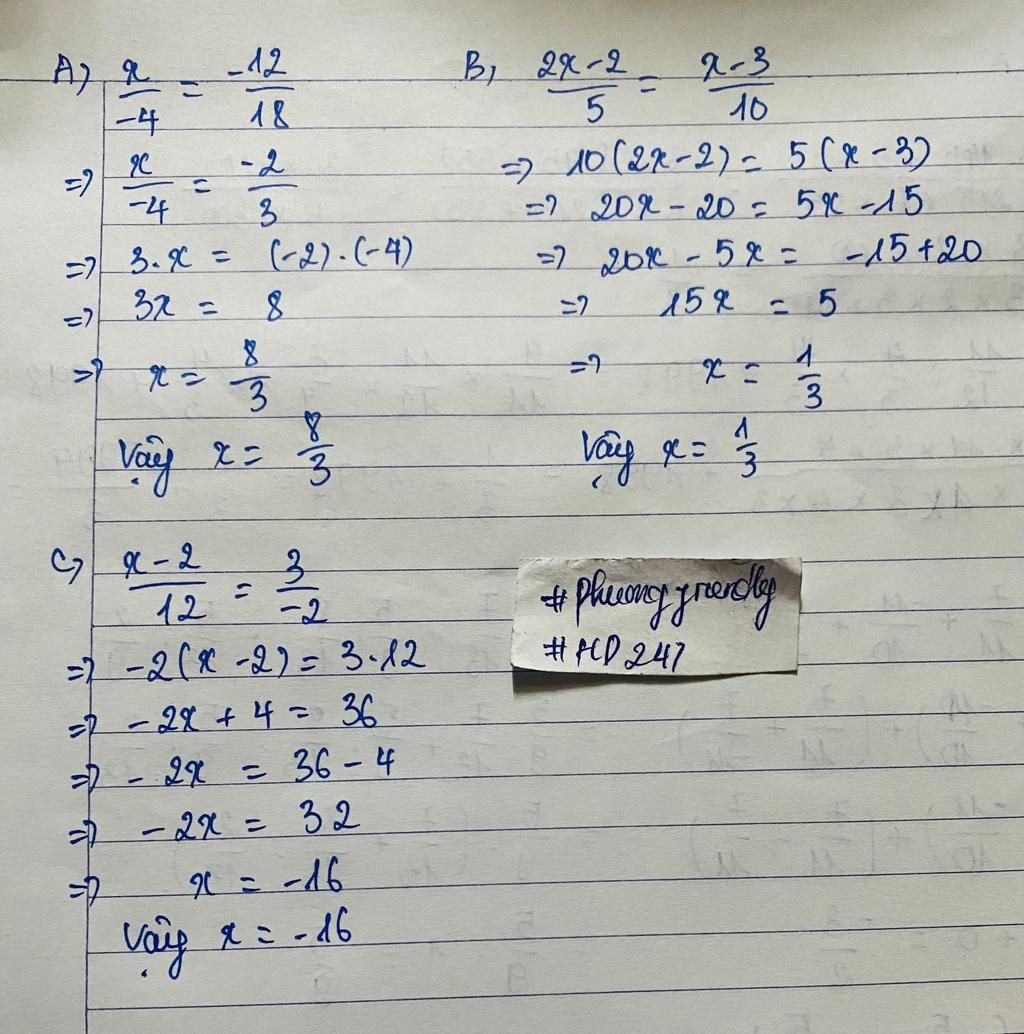 A) x/-4 = -12/18
=> x/-4 = -2/3
=> 3.x = (-2).(-4)
=> 3x = 8
=> x = 8/3
Vậy x = 8/3
B) 2x-2/5 = x-3/10
=> 10(2x-2) = 5(x-3)
=> 20x - 20 = 5x - 15
=> 20x - 5x = -15+20
=> 15x = 5
=> x = 1/3
Vậy x = 1/3
C) x-2/12 = 3/-2
=> -2(x-2) = 3.12
=> -2x + 4 = 36
=> -2x = 36 - 4
=> -2x = 32
=> x = -16
Vậy x = -16
#
#HD247